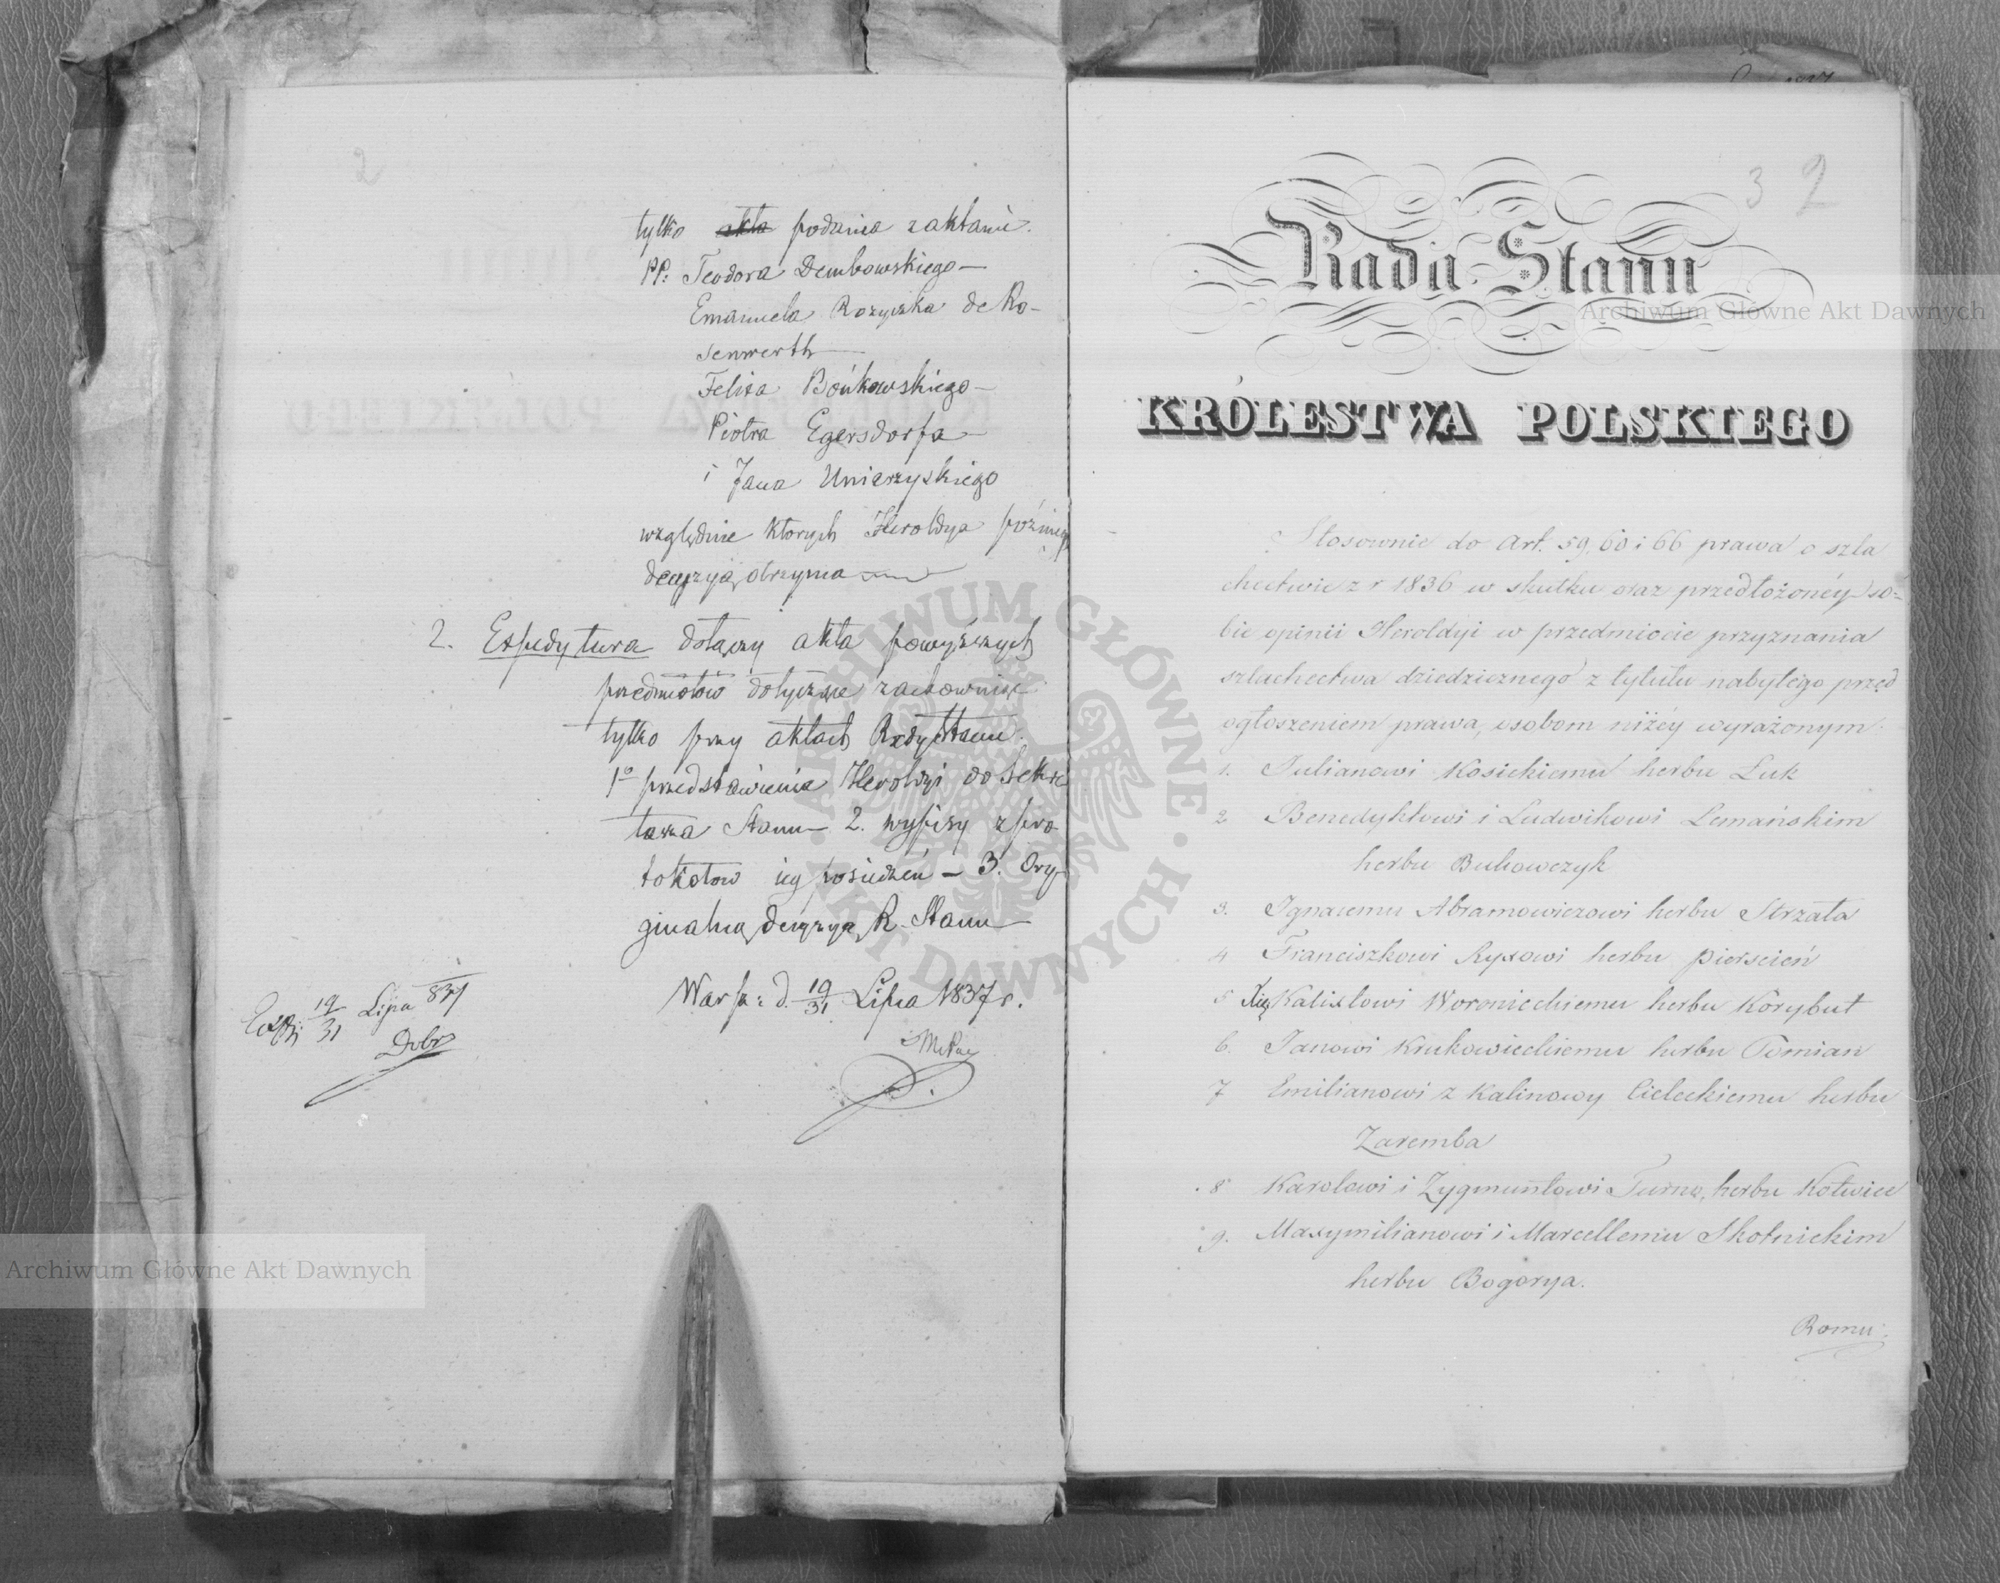 2
tylko akta podania z aktami
PP: Teodora Dembowskiego —
Emanuela Rozyczka de Ro-
senwerth —
Felixa Bońkowskiego —
Piotra Egersdorfa —
i Jana Unierzyskiego
względnie ktorych Heroldya poźniey
decyzyą otrzyma —
2. Expedytura dołączy akta powyższych
przedmiotów dotyczące zachowując
tylko przy aktach Rady Stanu
1º przedstawienia Heroldyi do Sekre
tarza Stanu — 2. wypisy z pro-
tokołow iey posiedzeń — 3. Ory-
ginalną decyzyą R. Stanu —
Warsz: d. 19/31 Lipca 1837 r.
Exp: 19/31 Lipca 837
Dobr
3 2
Rada Stanu
KRÓLESTWA POLSKIEGO
Stosownie do Art. 59, 60 i 66 prawa o szla
chectwie z r 1836 w skutku oraz przedłożonéy so-
bie opinii Heroldyi w przedmiocie przyznania
szlachectwa dziedzicznego z tytułu nabytego przed
ogłoszeniem prawa, osobom niżéy wyrażonym.
1. Julianowi Kosickiemu herbu Łuk
2 Benedyktowi i Ludwikowi Lemańskim
herbu Bukowczyk
3. Ignacemu Abramowiczowi herbu Strzała
4 Franciszkowi Ryxowi herbu Pierscień
5 Xię Kalixtowi Woronieckiemu herbu Korybut
6. Janowi Krukowieckiemu herbu Pomian
7 Emilianowi z Kalinowy Cieleckiemu herbu
Zaremba
8 Karolowi i Zygmuntowi Turno, herbu Kotwica
9. Maxymilianowi i Marcellemu Skotnickim
herbu Bogorya.
Romu:
Archiwum Główne Akt Dawnych
Archiwum Główne Akt Dawnych
ARCHIWUM GŁÓWNE · AKT DAWNYCH ·